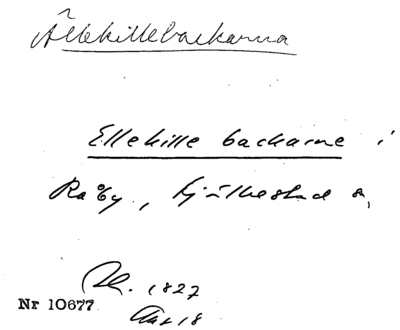 Ällekillebackarna
Ellekille backarne i
Råby, Fjälkestad s,
1827
Akt 18
Nr 10677